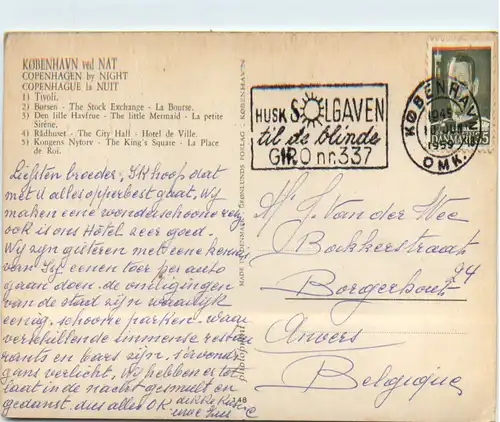 KØBENHAVN ved NAT
COPENHAGEN by NIGHT
COPENHAGUE la NUIT
1) Tivoli.
2) Børsen - The Stock Exchange - La Bourse.
3) Den lille Havfrue - The little Mermaid - La petite
Sirène.
4) Rådhuset - The City Hall - Hotel de Ville.
5) Kongens Nytorv - The King's Square - La Place
de Roi.
Liefsten broeder, ik hoop dat
met u alles opperbest gaat, wij
maken eene wonderschoone reis
ook is ons Hôtel zeer goed.
Wij zijn gisteren met eene kennis
van een toer per auto
gaan doen. de omligingen
van de stad zijn waarlijk
eenig. schoone parken. waar
verschillende immense restau
rants en bars zijn, s'avonds
gans verlicht, Wij hebben er tot
laat in de nacht gesmuld en
gedanst, dus alles OK dikke kussen
uwe Zus
MADE IN DENMARK GRØNLUNDS FORLAG - KØBENHAVN
148
HUSK SOLGAVEN
til de blinde
GIRO nr. 337
KØBENHAVN
OMK.
Mr J. Van der Wee
Bokkerstraat
24
Borgerhout
Anvers
Belgique